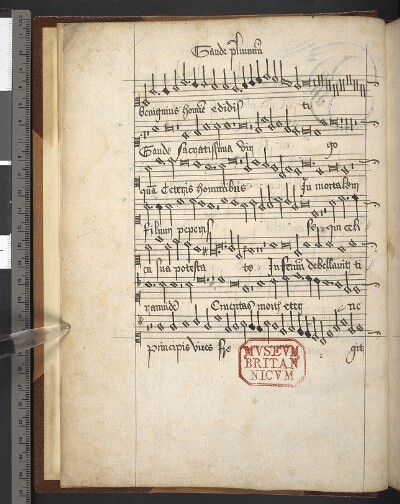 Gaude plurimum
benignius homīe edidis ti
Gaude sacratissima vir go
quā ceteris hominibus In mortalem
filium peperis se qui celi
ca sua potesta te Infernū debellavit ti
rannidē mortis eter ne
principis vires fre git
MVSEVM
BRITAN
NICVM